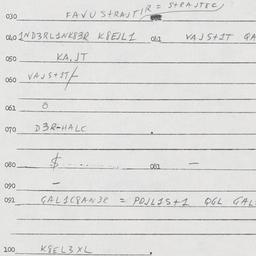 030 FAVUSTRAJTIR = STRAJTEC
040 1ND3RL1NK83R K8EJL1 041 VAJS+1T GA
050 KA,JT
060 VAJS+1T/
061 8
070 D3R-HALC .
080 $ . . . . . . 081 —
090 —
091 GAL1C8AN3C = PDJL1S+1 QGL GAL
100 K8EL3XL .